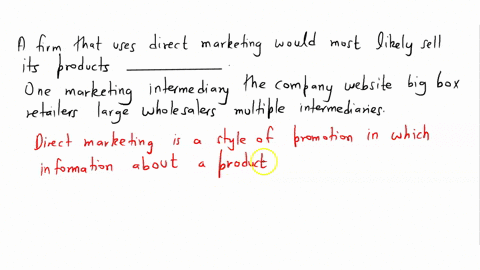 A firm that uses direct marketing would most likely sell
its products ____________ .
One marketing intermediary the company website big box
retailers large wholesalers multiple intermediaries.
Direct marketing is a style of promotion in which
information about a product